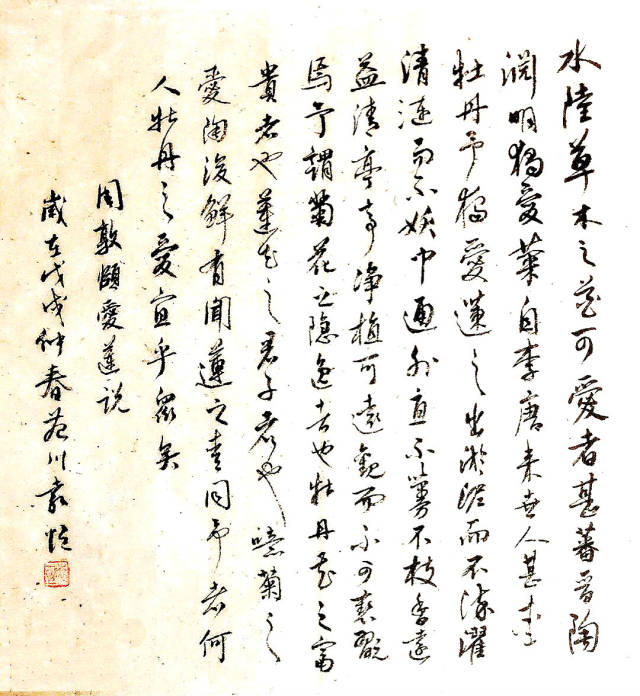 水陸草木之花可愛者甚蕃晉陶
淵明獨愛菊自李唐來世人甚愛
牡丹予獨愛蓮之出淤泥而不染濯
清漣而不妖中通外直不蔓不枝香遠
益清亭亭净植可遠觀而不可褻翫
焉予謂菊花之隱逸者也牡丹花之富
貴者也蓮花之君子者也噫菊之
愛陶後鮮有聞蓮之愛同予者何
人牡丹之愛宜乎眾矣
周敦頤愛蓮説
歲在戊戌仲春